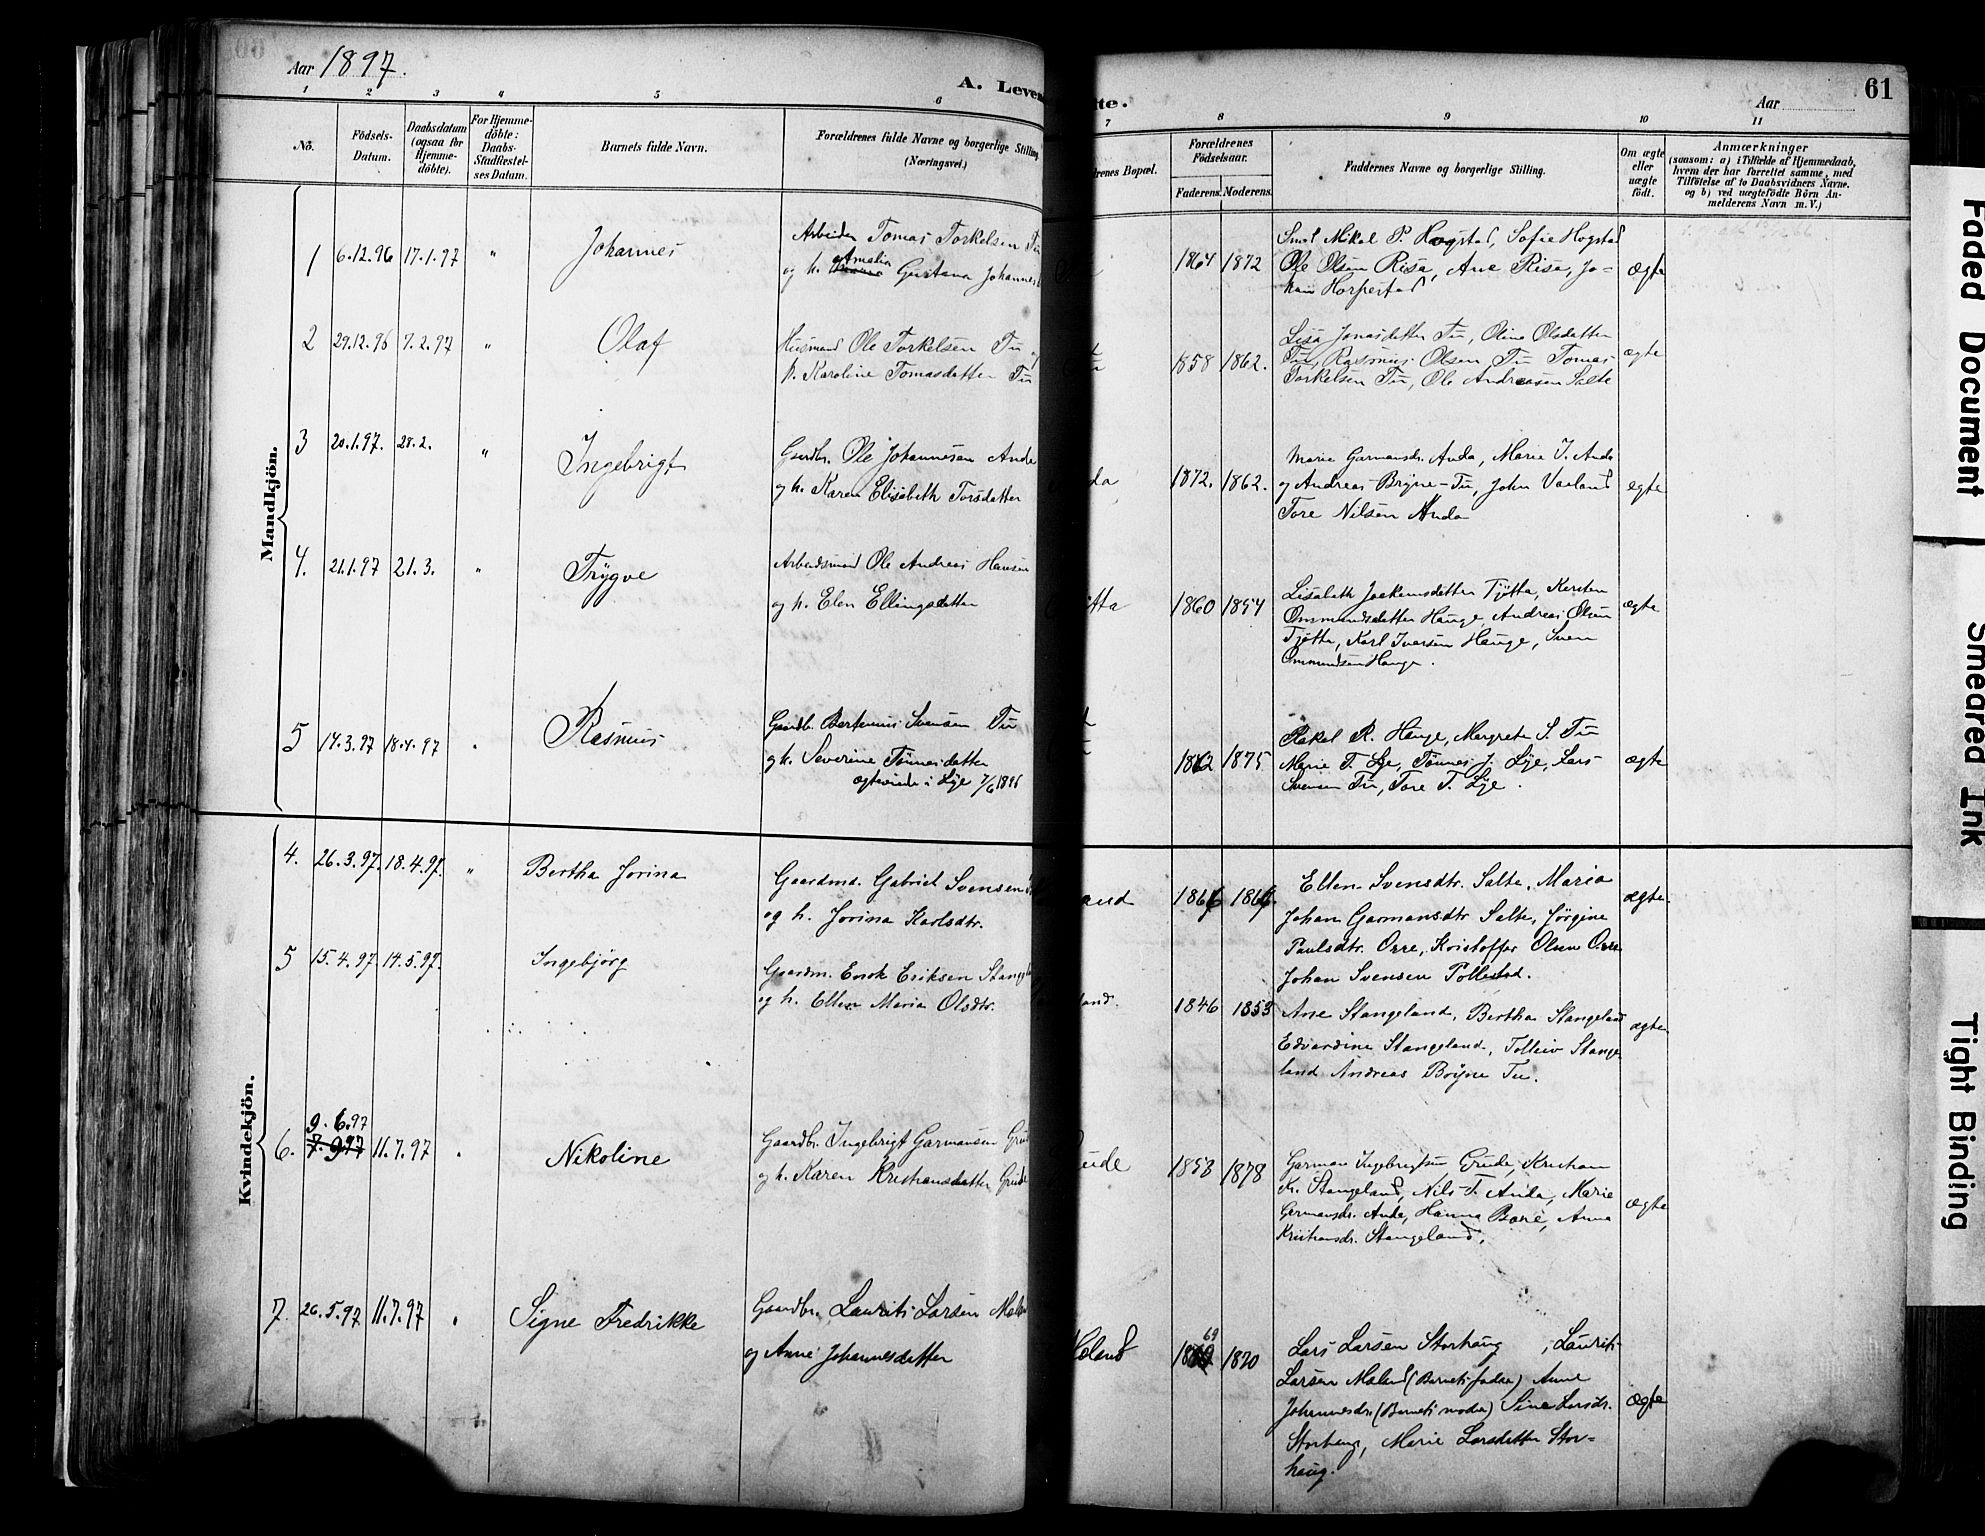 Aar 1897.
A. Leven
te.
Aar
61
1 2 3 4 5 6 7 8 9 10 11
No.
Födsels-
Datum.
Daabsdatum
(ogsaa for
Hjemme-
döbte).
For Hjemme-
döbte:
Daabs-
Stadfæstel-
ses Datum.
Barnets fulde Navn.
Forældrenes fulde Navne og borgerlige Stilling
(Næringsvei.)
drenes Bopæl.
Forældrenes
Födselsaar.
Faderens. Moderens.
Faddernes Navne og borgerlige Stilling.
Om ægte
eller
uægte
födt.
Anmærkninger
(saasom: a) i Tilfælde af Hjemmedaab,
hvem der har forrettet samme, med
Tilföielse af to Daabsvidners Navne.
og b) ved uægtefödte Börn An-
melderens Navn m. V.)
Mandkjön.
1 6.12.96 17.1.97 " Johannes
Arbeider Tomas Torkelsen Tu
Amalia
og h. Gustana Johannesd
1864 1872
Mikal P. Hogstad, Sofie Hogstad
Ole Olsen Risa, Ane Risa, Jo-
han Horpestad
ægte
2 29.12.96 7.2.97 " Olaf
Husmand Ole Torkelsen Tu og
h. Karoline Tomasdatter Tu
1858 1862.
Lisa Jonasdatter Tu, Oline Olsdatter
Tu, Rasmus Olsen Tu Tomas
Torkelsen Tu, Ole Andreasen Salte
ægte
3 20.1.97. 28.2. " Ingebrigt
Gaardbr. Ole Johannesen Anda
og h. Karen Elisabeth Torsdatter
da
1872. 1862.
Marie Garmansdr. Anda, Marie J. Anda
og Andreas Bryne-Tu, John Vaeland
Tore Nilsen Anda
egte
4. 21.1.97 21.3. " Trygve
Arbeidsmand Ole Andreas Hansen
og h. Elen Ellingsdatter
tta
1860 1854
Lisabeth Joakimsdatter Tjøtta, Kirsten
Ommundsdatter Hauge, Andreas Olsen
Tjøtta, Karl Iversen Hauge, Sven
Ommundsen Hauge.
ægte
5 14.3.97 18.4.97 " Rasmus
Gaardbr. Bertinius Svensen Tu
og h. Severine Tønnesdatter
ægteviede i Lye 7/6 1896
1862 1875
Rakel R. Hauge, Margrete S. Tu
Marie T. Lye, Tønnes J. Lye, Lars
Svensen Tu, Tore T. Lye.
ægte
Kvindekjön.
4. 26.3.97. 18.4.97. " Bertha Jorina
Gaardmd. Gabriel Svensen
og h. Jorina Karlsdtr.
land
1866 1866.
Ellen Svensdtr. Salte, Maria
Johan Garmansdtr Salte, Jørgine
Paulsdtr. Orre, Kristoffer Olsen Orre
Johan Svensen Pollestad.
ægte
5 15.4.97 14.5.97. Ingebjørg
Gaardm. Enok Eriksen Stangeland
og h. Ellen Maria Olsdtr.
land.
1846 1853
Ane Stangeland, Bertha Stangeland
Edvardine Stangeland, Tolleiv Stange-
land Andreas Bryne Tu.
ægte
9.6.97
6. 7.997 11.7.97 " Nikoline
Gaardbr. Ingebrigt Garmansen Grude
og h. Karen Kristiansdatter Grude
ude
1853 1878
Garman Ingebrigtsen Grude, Kristian
K. Stangeland, Nils T. Anda, Marie
Garmansdr. Anda, Hanna Bore, Anna
Kristiansdr. Stangeland,
ægte
7. 26.5.97 11.7.97 " Signe Fredrikke
Gaardbr. Laurits Larsen Maland
og Anne Johannesdatter
oland
69
1870
Lars Larsen Storhaug, Laurits
Larsen Maland (Barnets fader) Anne
Johannesdr. (Barnets moder) Sina Larsdr.
Storhaug, Marie Larsdatter Stor-
haug.
ægte
Faded Document
Smeared Ink
Tight Binding